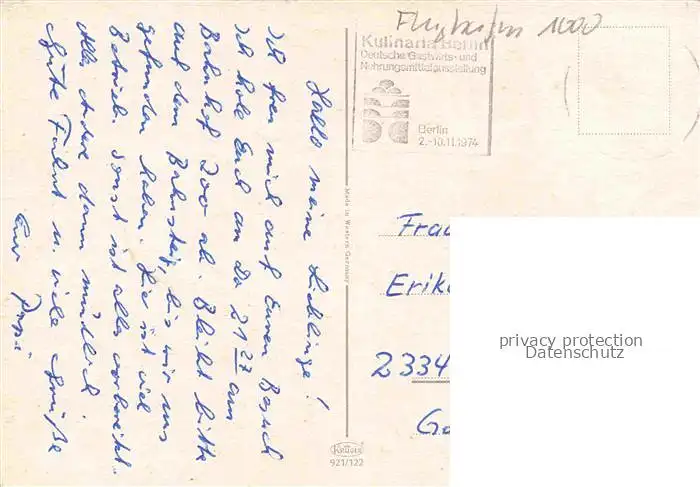 Hallo meine Lieblinge!
Ich freu mich auf Euren Besuch
Ich hole Euch am Do 21 27 am
Bahnhof Zoo ab. Bleibt bitte
auf dem Bahnsteig, bis wir uns
gefunden haben. Hie ist viel
Betrieb. Sonst ist alles vorbereitet.
Alles Andere dann mündlich.
Gute Fahrt u. viele Grüße
Euer Papi
Made in Western Germany
Krüger
921/122
Flughafen 1000
Kulinaria Berlin
Deutsche Gastwirts- und
Nahrungsmittelausstellung
Berlin
2.-10.11.1974
Frau
Erika
2334
privacy protection
Datenschutz